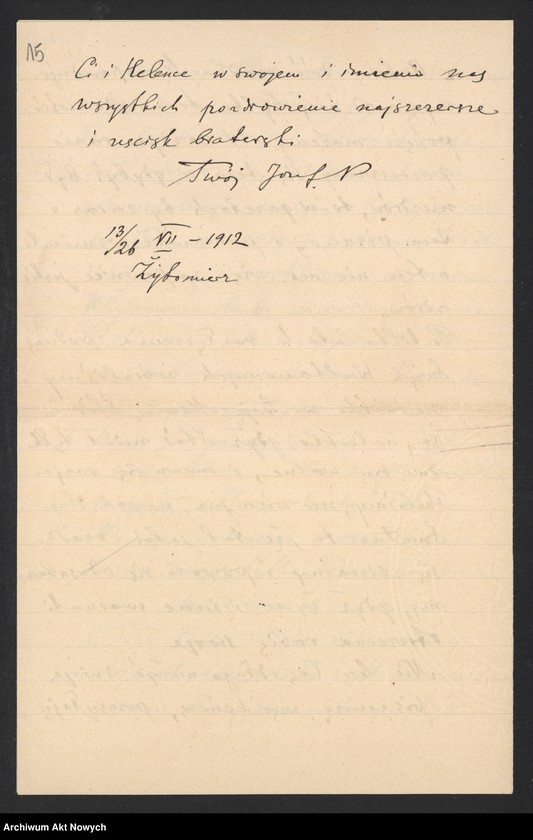 15
Ci i Helence w swojem i imieniu nas
wszystkich pozdrowienie najszczersze
i uścisk braterski
Twój Józef P
13/26 VII - 1912
Żytomierz
Archiwum Akt Nowych